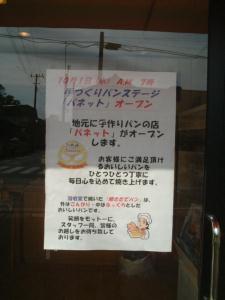 10月1日 AM 7時
手づくりパンステージ
「パネット」オープン
地元に手作りパンの店
「パネット」がオープン
します。
お客様にご満足頂け
るおいしいパンを
ひとつひとつ丁寧に
毎日心を込めて焼き上げます。
で焼いた「焼きたてパン」は、
外はこんがり・中はふっくらとした
おいしいパンです。
笑顔をモットーに、
スタッフ一同、皆様の
お越しをお待ち致して
おります。